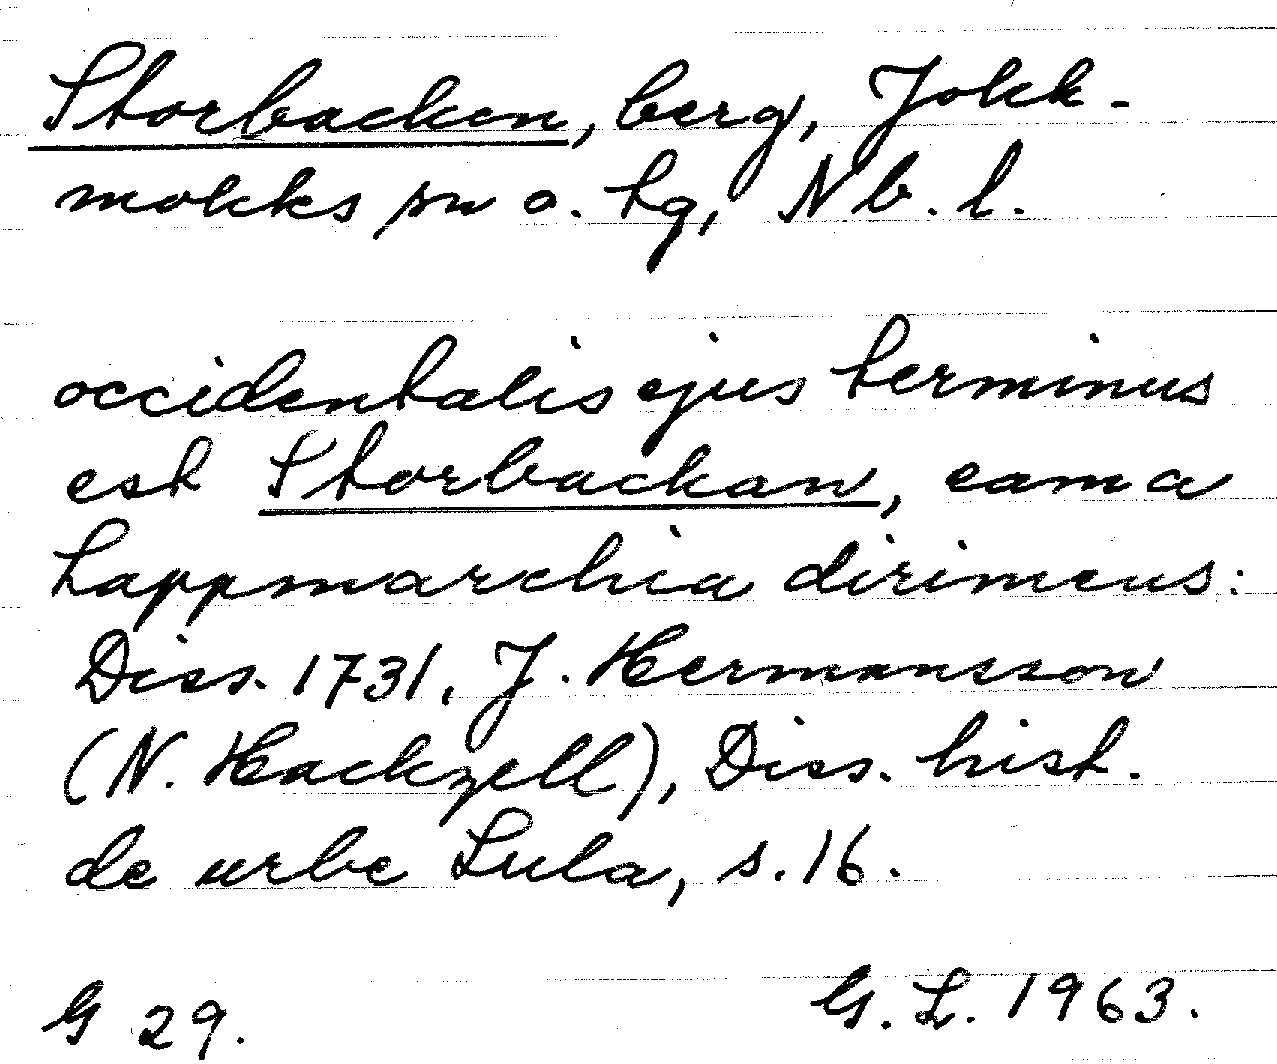 Storbacken, berg, Jokk-
mokks sn o. tg, Nb. l.
occidentalis ejus terminus
est Storbackan, eam a
Lappmarchia dirimens:
Diss. 1731, J. Hermansson
(N. Hackzell), Diss. hist.
de urbe Lula, s. 16.
G 29.
G. L. 1963.